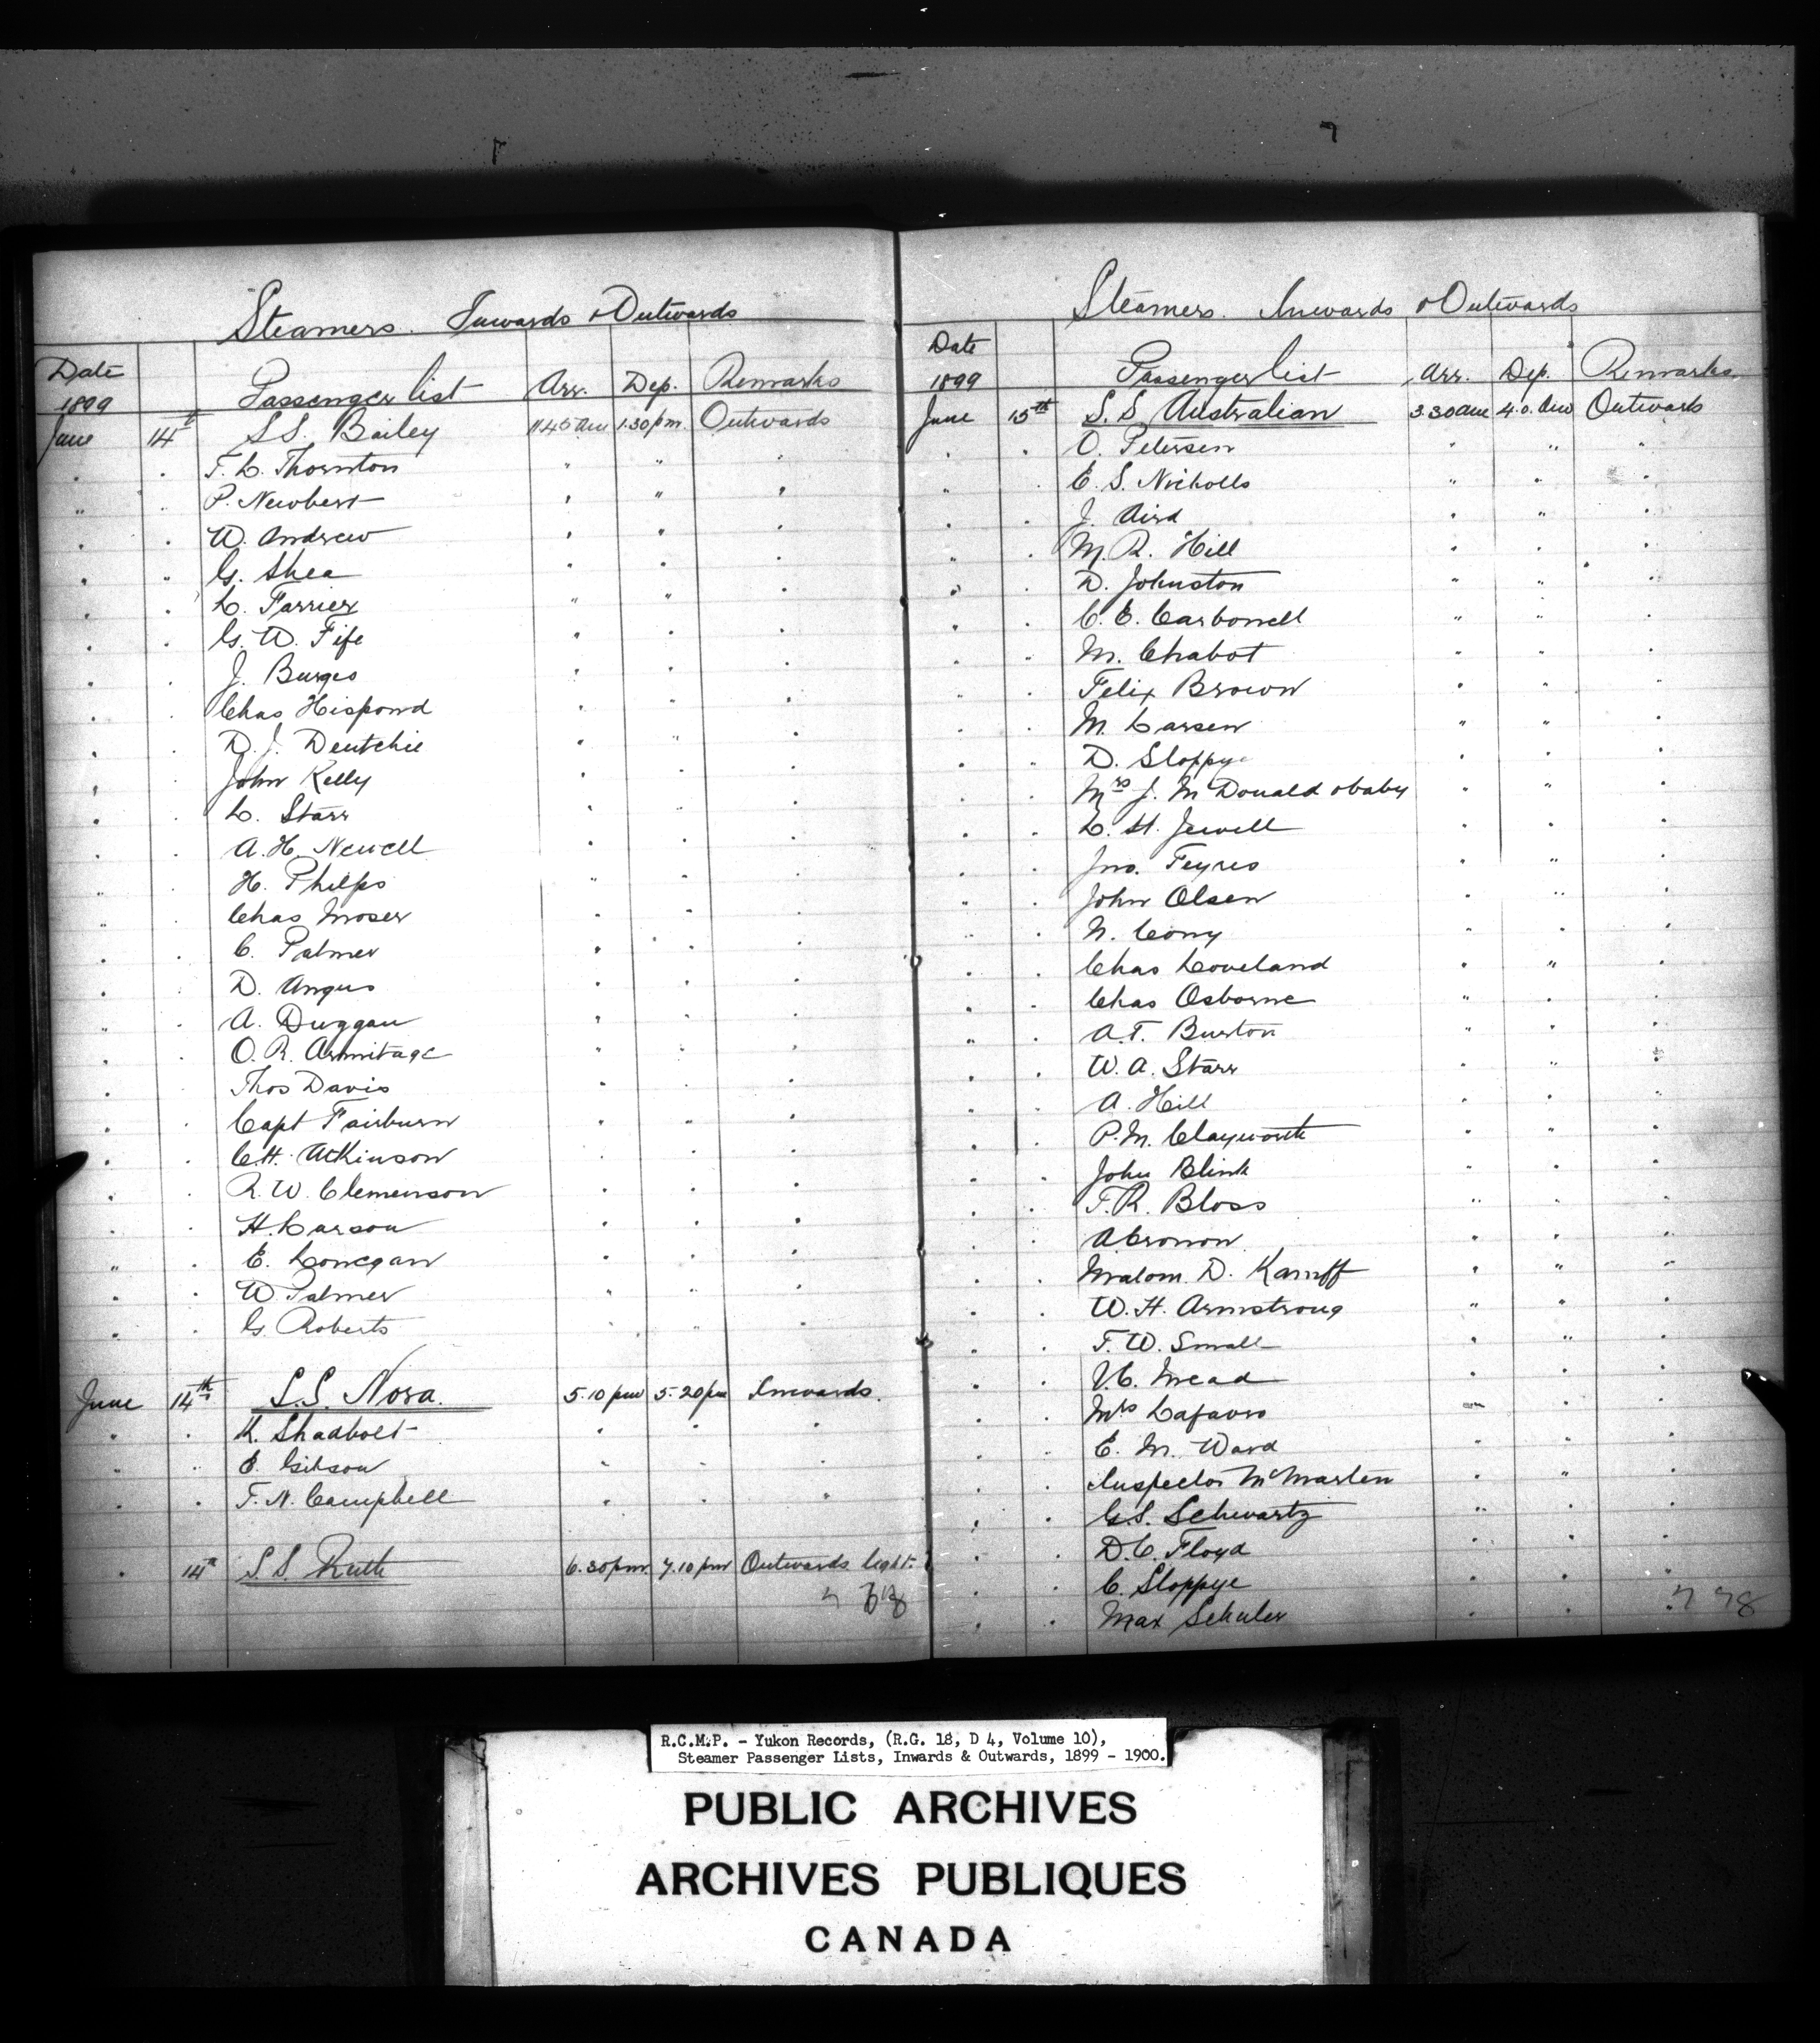 Steamers. Inwards & Outwards
Date
1899 Passenger list Arr. Dep. Remarks
June 14th S.S. Bailey 11.45 am 1.30 pm. Outwards
" " F. L. Thornton " " "
" " P. Newbert " " "
" " W. Andrew " " "
" " G. Shea " " "
" " L. Farrier " " "
" " G. W. Fife " " "
" " J. Burges " " "
" " Chas Hispond " " "
" " D. J. Deutchie " " "
" " John Kelly " " "
" " L. Starr " " "
" " A. H. Newell " " "
" " H. Philps " " "
" " Chas Moser " " "
" " C. Palmer " " "
" " D. Angus " " "
" " A. Duggan " " "
" " O. R. Armitage " " "
" " Thos Davis " " "
" " Capt Fairburn " " "
" " C. H. Atkinson " " "
" " R. W. Clemenson " " "
" " H. Larson " " "
" " E. Lonegan " " "
" " W. Palmer " " "
" " G. Roberts " " "
June 14th S.S. Nora. 5.10 pm 5.20 pm Inwards.
" " K. Shadbolt " " "
" " E. Gibson " " "
" " F. N. Campbell " " "
" 14th S.S. Ruth 6.30 pm. 7.10 pm Outwards light.
Steamers. Inwards & Outwards
Date
1899 Passenger list Arr. Dep. Remarks.
June 15th S.S. Australian 3.30 am 4.0. am Outwards
" " O. Petersen " " "
" " E. S. Nicholls " " "
" " J. Aird " " "
" " M. R. Hill " " "
" " D. Johnston " " "
" " C. E. Carbonell " " "
" " M. Chabot " " "
" " Felix Brown " " "
" " M. Larsen " " "
" " D. Sloppye " " "
" " Mrs J. McDonald & baby " " "
" " L. H. Jewell " " "
" " Jno. Feyres " " "
" " John Olsen " " "
" " N. Cony " " "
" " Chas Loveland " " "
" " Chas Osborne " " "
" " A. T. Burton " " "
" " W. A. Starr " " "
" " A. Hill " " "
" " P. M. Clayworth " " "
" " John Blink " " "
" " F. R. Bloss " " "
" " A Cronon " " "
" " D. Karnff " " "
" " W. H. Armstrong " " "
" " F. W. Small " " "
" " V. C. Mead " " "
" " Mrs Lafavro " " "
" " E. M. Ward " " "
" " Inspector McMarten " " "
" " G. S. Schwartz " " "
" " D. C. Floyd " " "
" " C. Sloppye " " "
" " Max Schuler " " "
R.C.M.P. - Yukon Records, (R.G. 18, D 4, Volume 10),
Steamer Passenger Lists, Inwards & Outwards, 1899 - 1900.
PUBLIC ARCHIVES
ARCHIVES PUBLIQUES
CANADA